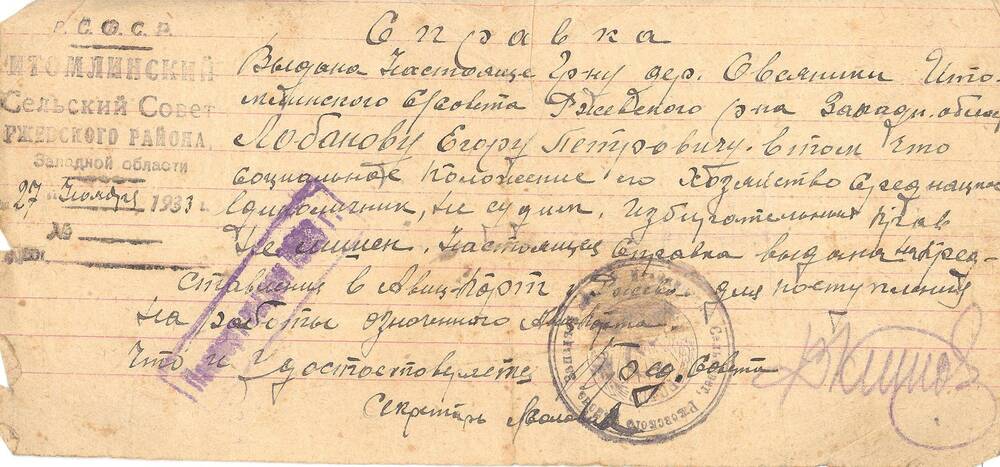 Р. С. Ф. С. Р.
ИТОМЛИНСКИЙ
Сельский Совет
РЖЕВСКОГО РАЙОНА,
Западной области
27 Ноября 1933 г.
№
Справка
Выдана Настояще Гр-ну дер. Овсяники Ито-
млинского с/совета Ржевского р-на Западн. облас.
Лобанову Егору Петровичу. в том что
социальное положение его хозяйство Средняцкое
Единоличник, не судим, избирательных прав
не лишен. Настоящая Справка выдана на пред-
ставления в Авиа-Порт г. Ржева для поступления
на работы означенного Авиапорта
Что и Удостоверяется
Пред. Совета
Секретарь